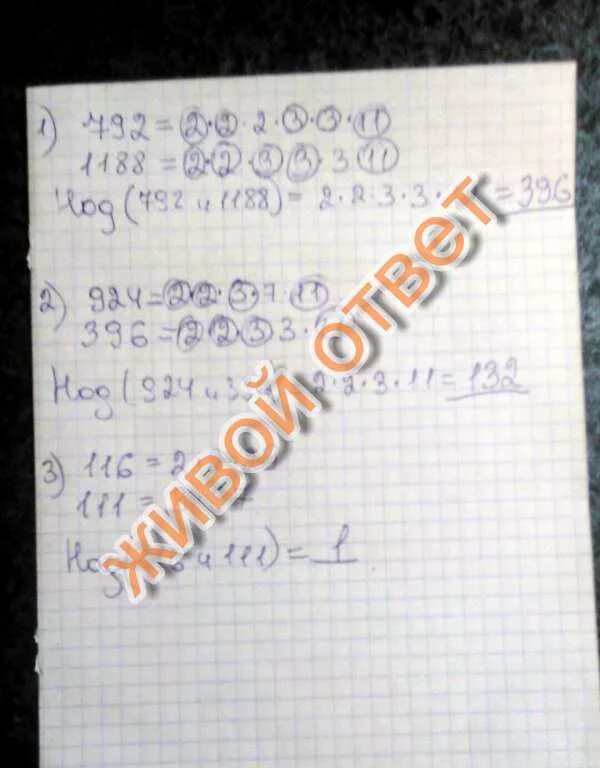 1) 792 = 2·2·2·3·3·11
1188 = 2·2·3·3·3·11
Нод (792 и 1188) = 2·2·3·3· = 396
2) 924 = 2·2·3·7·11
396 = 2·2·3·3·
Нод (924 и 3 2·2·3·11 = 132
3) 116 = 2
111 =
и 111) = 1
ЖИВОЙ ОТВЕТ